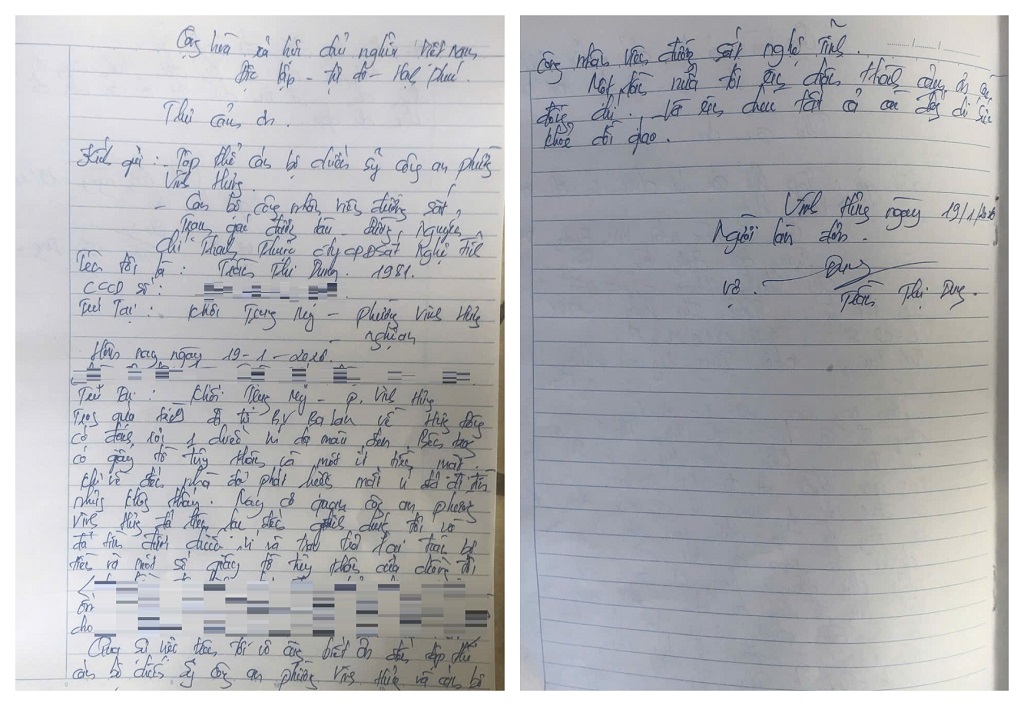 Cộng hòa xã hội chủ nghĩa Việt Nam
Độc lập - tự do - Hạnh phúc.
Thư cảm ơn.
Kính gửi : - Tập thể cán bộ chiến sỹ công an phường
Vinh Hưng.
- Cán bộ công nhân viên đường sắt
Trạm gác đường tàu - Đường Nguyễn
Chí Thanh thuộc cty CPĐSắt Nghệ Tĩnh
Tên tôi là : Trần Thị Dung. 1981.
CCCD số :
Trú Tại : Khối Trung Mỹ - phường Vinh Hưng
Nghệ an
Hôm nay ngày 19-1-2026.
Trú tại : Khối Trung Mỹ - P. Vinh Hưng
Trong quá trình đi từ BV Ba Lan về Hưng Đông
có đánh rơi 1 chiếc ví da màu đen Bên trong
có giấy tờ tùy thân và một ít tiền mặt.
Khi về đến nhà đã phát hiện mất ví đã đi tìm
nhưng không thấy. Nay cơ quan công an phường
Vinh Hưng đã
đã tìm được chiếc ví và trao trả lại toàn bộ
tiền và một số giấy tờ tùy thân của chồng tôi
cho
Qua sự việc trên tôi vô cùng biết ơn đến tập thể
cán bộ chiến sỹ công an phường Vinh Hưng và cán bộ
công nhân viên đường sắt Nghệ Tĩnh.
Một lần nữa tôi xin chân thành cảm ơn các
đồng chí. Và xin chúc tất cả các đồng chí sức
khỏe dồi dào.
Vinh Hưng ngày 19/1/2026
Người làm đơn.
Dung
Vợ. Trần Thị Dung.